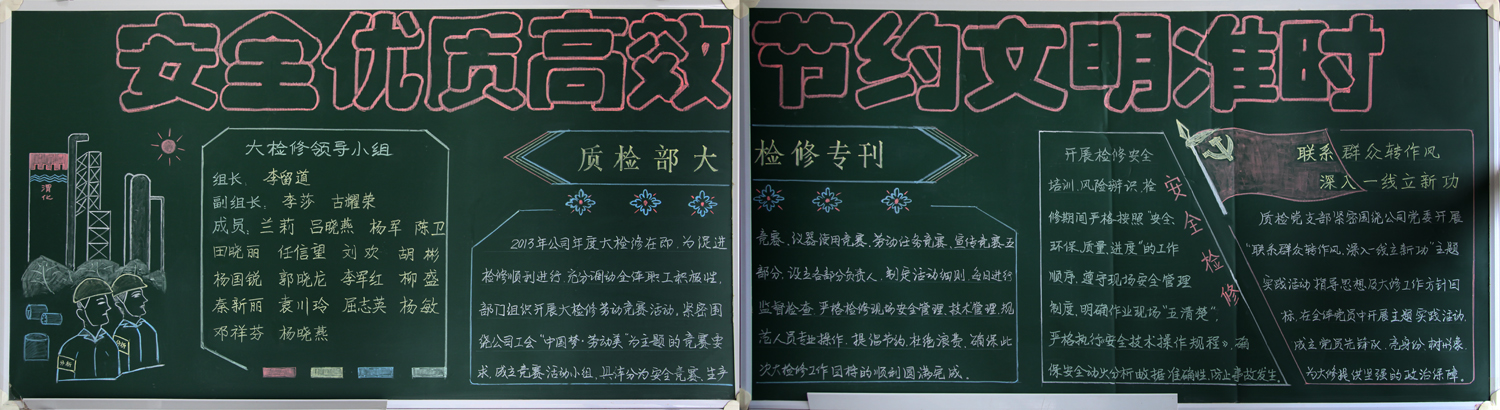 安全优质高效 节约文明准时
渭化
大检修领导小组
组长：李留道
副组长：李莎 古耀荣
成员：兰莉 吕晓燕 杨军 陈卫
田晓丽 任信望 刘欢 胡彬
杨国锐 郭晓龙 李军红 柳盛
秦新丽 袁川玲 屈志英 杨敏
邓祥芬 杨晓燕
质检部大检修专刊
2013年公司年度大检修在即，为促进
检修顺利进行，充分调动全体职工积极性，
部门组织开展大检修劳动竞赛活动，紧密围
绕公司工会“中国梦·劳动美”为主题的竞赛要
求，成立竞赛活动小组，具体分为安全竞赛、生产
竞赛、仪器使用竞赛、劳动任务竞赛、宣传竞赛五
部分，设立各部分负责人，制定活动细则，每日进行
监督检查，严格检修现场安全管理、技术管理，规
范人员专业操作，提倡节约，杜绝浪费，确保此
次大检修工作因样的顺利圆满完成。
开展检修安全
培训，风险辨识，检
修期间严格按照“安全、
环保、质量、进度”的工作
顺序，遵守现场安全管理
制度，明确作业现场“五清楚”，
严格执行安全技术操作规程》，确
保安全动火分析数据准确性，防止事故发生。
安全检修
联系群众转作风
深入一线立新功
质检党支部紧密围绕公司党委开展
“联系群众转作风，深入一线立新功”主题
实践活动指导思想及大修工作方针目
标，在全体党员中开展主题实践活动，
成立党员先锋队，亮身份，树形象，
为大修提供坚强的政治保障。